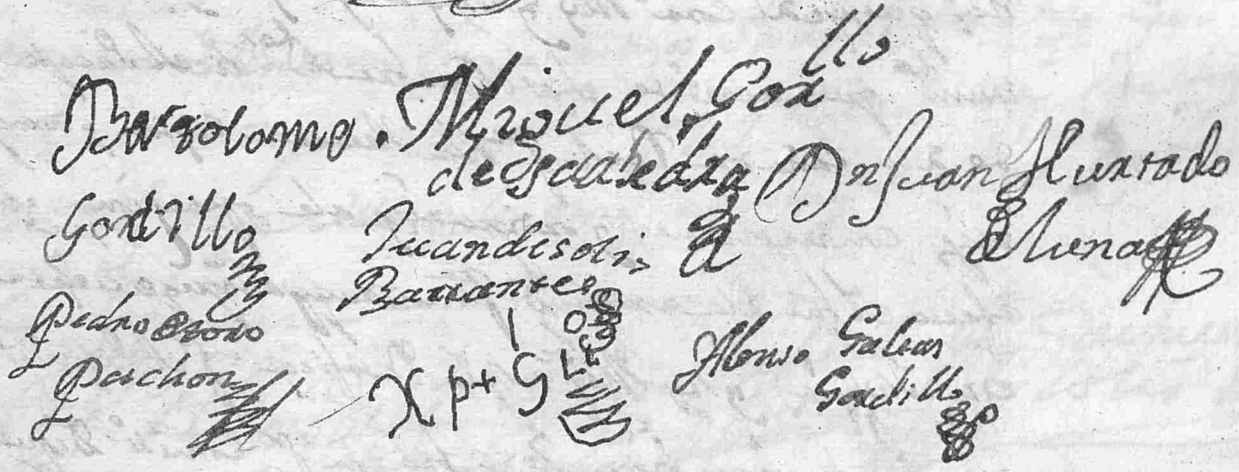 Bartolome
Gordillo
Miguel Gorllo
de Saabedra
Dn Juan Hurtado
Eluna
Juan de solis
Barrantes
Pedro
Pachon
Alonso Galeas
Gordillo